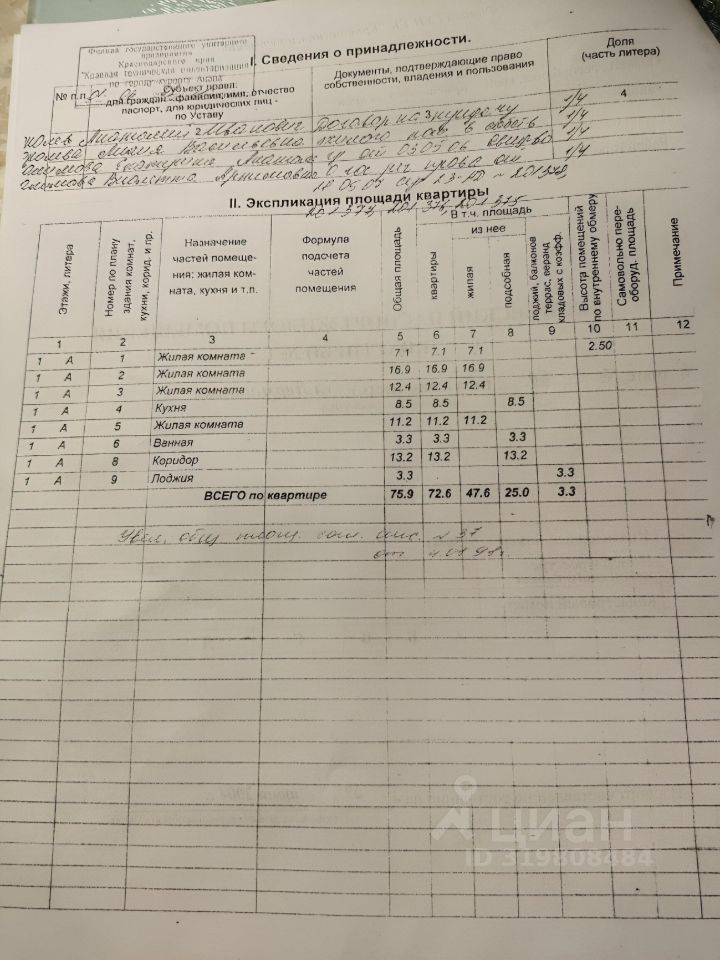 Филиал государственного унитарного
предприятия
Краснодарского края
"Краевая техническая инвентаризация
по городу-курорту Анапа"
I. Сведения о принадлежности.
№ п.п.
Субъект права:
для граждан - фамилия, имя, отчество
паспорт, для юридических лиц -
по Уставу
Документы, подтверждающие право
собственности, владения и пользования
Доля
(часть литера)
4
Анатолий Иванович Договор на передачу 1/4
Мария Васильевна жилого в 1/4
Екатерина от 03.05.06 1/4
Виолетта Артиловна о гос рег права от 1/4
201377, 201376, 201375
II. Экспликация площади квартиры
Этажи, литера
Номер по плану здания комнат, кухни, корид. и пр.
Назначение частей помещения: жилая комната, кухня и т.п.
Формула подсчета частей помещения
Общая площадь
В т.ч. площадь
квартиры
из нее
жилая
подсобная
лоджий, балконов террас, веранд кладовых с коэфф.
Высота помещений по внутреннему обмеру
Самовольно переоборуд. площадь
Примечание
1 2 3 4 5 6 7 8 9 10 11 12
1 А 1 Жилая комната 7.1 7.1 7.1 2.50
1 А 2 Жилая комната 16.9 16.9 16.9
1 А 3 Жилая комната 12.4 12.4 12.4
1 А 4 Кухня 8.5 8.5 8.5
1 А 5 Жилая комната 11.2 11.2 11.2
1 А 6 Ванная 3.3 3.3 3.3
1 А 8 Коридор 13.2 13.2 13.2
1 А 9 Лоджия 3.3 3.3
ВСЕГО по квартире 75.9 72.6 47.6 25.0 3.3
Увел. общ. площ. согл. инс. № 37
от
циан
ID 319808484